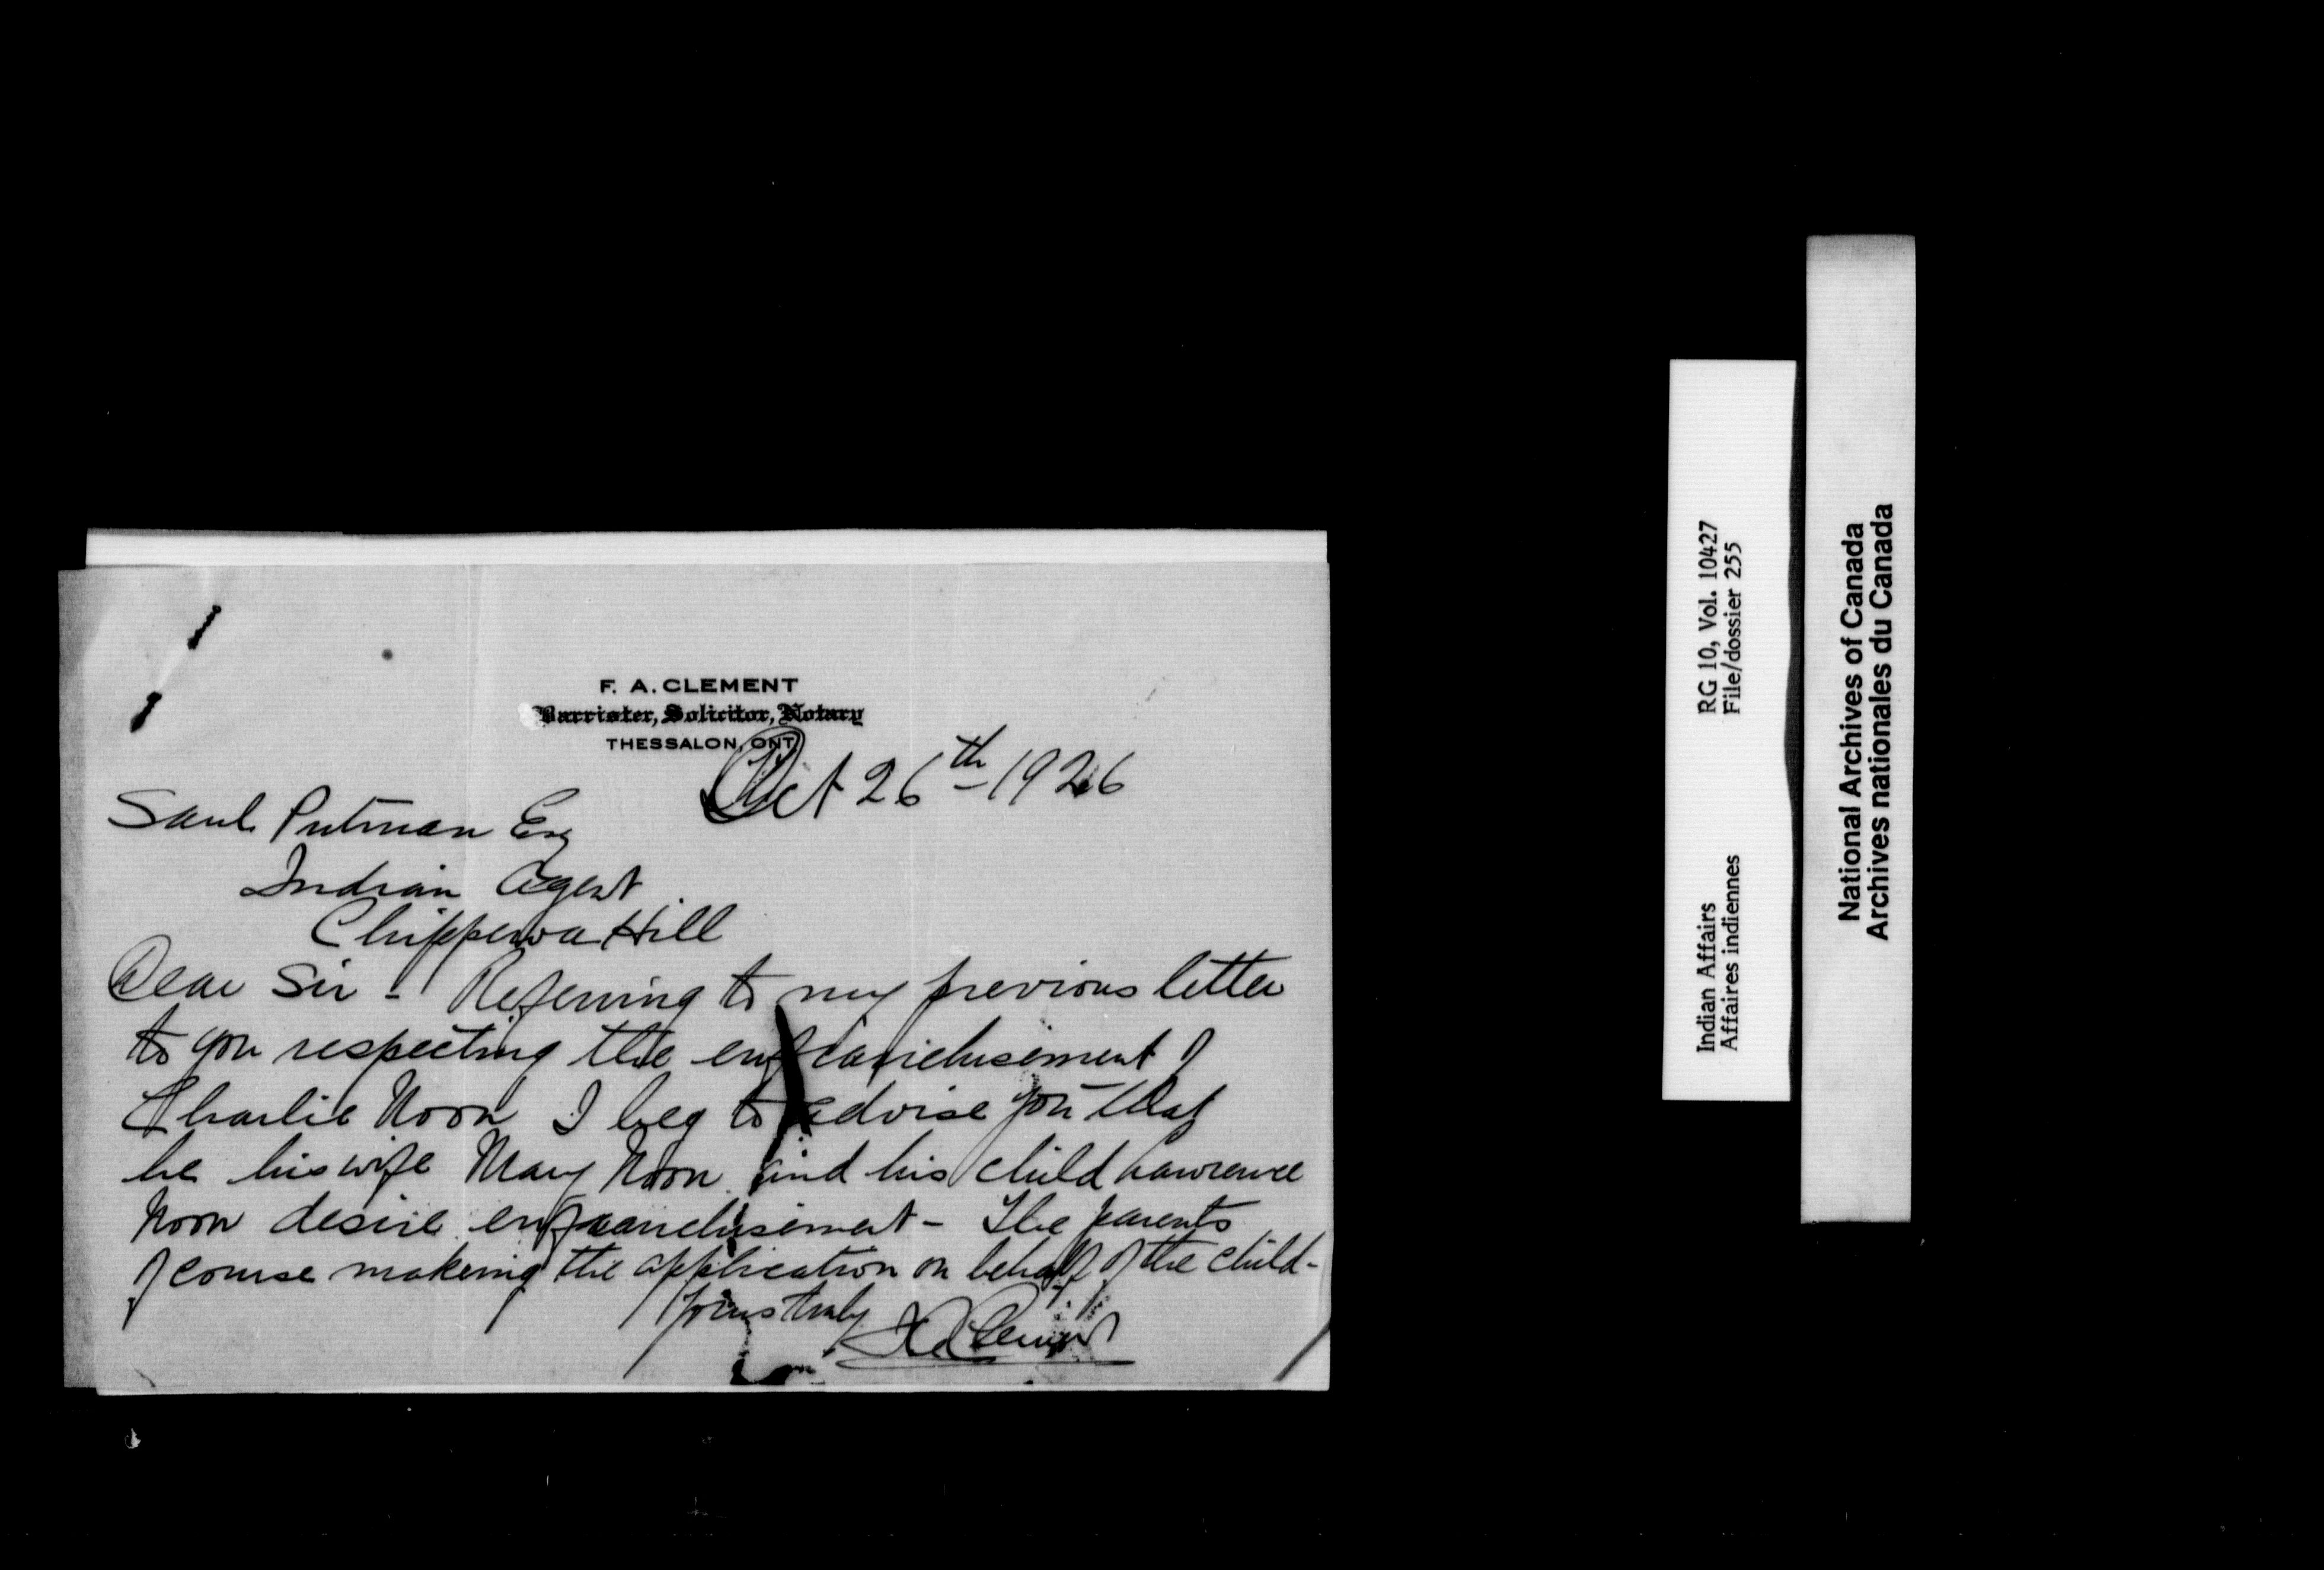 F. A. CLEMENT
Barrister, Solicitor, Notary
THESSALON, ONT
Oct 26th - 1926
Putman Esq
Indian Agent
Chippewa Hill
Dear Sir - Referring to my previous letter
to you respecting the enfranchisement of
Charlie Noon I beg to advise you that
he his wife Mary Noon and his child Lawrence
Noon desire enfranchisement - The parents
of course makeing the application on behalf of the child -
Yours truly
F A Clement
Indian Affairs RG 10, Vol. 10427
Affaires indiennes File/dossier 255
National Archives of Canada
Archives nationales du Canada